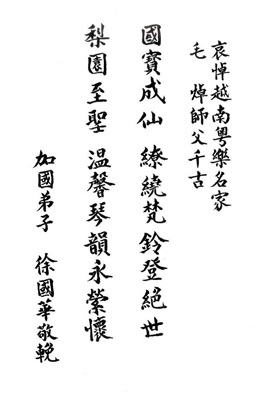 哀悼越南粵樂名家
毛焯師父千古
國寶成仙 繚繞梵鈴登絕世
梨園至聖 溫馨琴韻永縈懷
加國弟子 徐國華敬輓